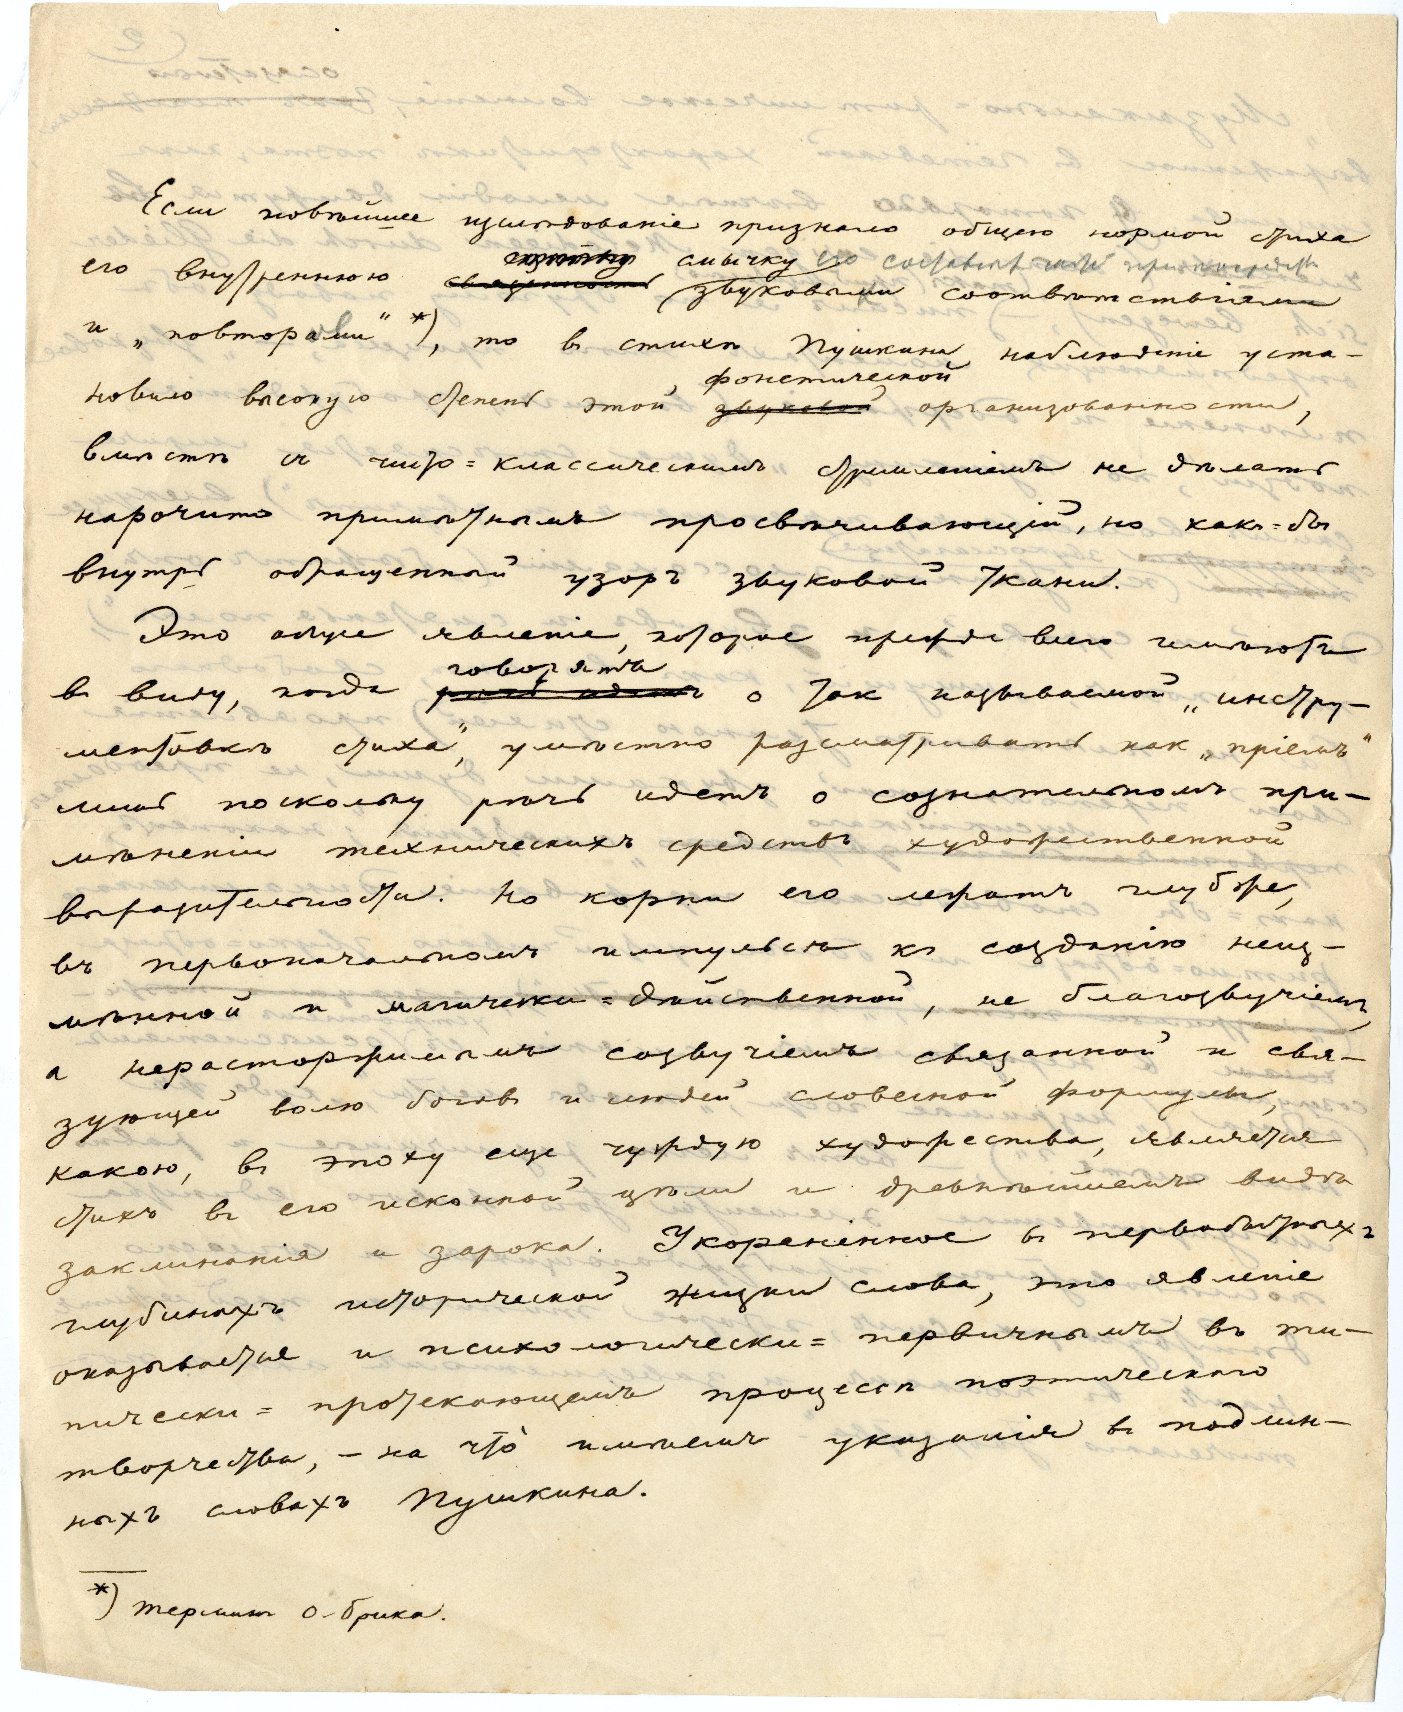 Если новѣйшее изслѣдованіе признало общею нормой стиха
смычку его составныхъ частей
его внутреннюю связанность звуковыми соотвѣтствіями
и „повторами“ *), то въ стихѣ Пушкина наблюденіе уста-
фонетической
новило высокую степень этой звуковой организованности,
вмѣстѣ съ чисто=классическимъ стремленіемъ не дѣлать
нарочито примѣтнымъ просвѣчивающій, но какъ=бы
внутрь обращенный узоръ звуковой ткани.
Это общее явленіе, которое прежде всего имѣютъ
говорятъ
въ виду, когда рѣчь идетъ о так называемой „инстру-
ментовкѣ стиха“, умѣстно разсматривать как „пріемъ“
лишь поскольку рѣчь идетъ о сознательномъ при-
мѣненіи техническихъ средствъ художественной
выразительности. Но корни его лежатъ глубже,
въ первоначальномъ импульсѣ къ созданію неиз-
мѣнной и магически=дѣйственной, не благозвучіемъ,
а нерасторжимымъ созвучіемъ связанной и свя-
зующей волю боговъ и людей словесной формулы,
какою, въ эпоху еще чуждую художества, является
стихъ въ его исконной цѣли и древнѣйшемъ видѣ
заклинанія и зарока. Укорененное въ первобытныхъ
глубинахъ исторической жизни слова, это явленіе
оказывается и психологически=первичнымъ въ ти-
пически=протекающемъ процессѣ поэтическаго
творчества, – на что̀ имѣемъ указанія въ подлин-
ныхъ словахъ Пушкина.
*) Терминъ О. Брика.